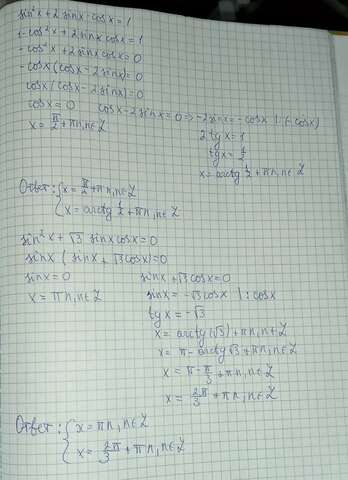 sin²x + 2 sinx · cosx = 1
1 - cos²x + 2 sinx cosx = 1
- cos²x + 2 sinx cosx = 0
- cosx (cosx - 2 sinx) = 0
cosx (cosx - 2 sinx) = 0
cosx = 0 cosx - 2 sinx = 0 => -2 sinx = - cosx | : (-cosx)
x = π/2 + πn, n ∈ Z 2 tg x = 1
tg x = 1/2
x = arctg 1/2 + πn, n ∈ Z
Ответ: { x = π/2 + πn, n ∈ Z
x = arctg 1/2 + πn, n ∈ Z
sin²x + √3 sinx cosx = 0
sinx (sinx + √3 cosx) = 0
sinx = 0 sinx + √3 cosx = 0
x = πn, n ∈ Z sinx = -√3 cosx | : cosx
tg x = -√3
x = arctg (√3) + πn, n ∈ Z
x = π - arctg √3 + πn, n ∈ Z
x = π - π/3 + πn, n ∈ Z
x = 2π/3 + πn, n ∈ Z
Ответ: { x = πn, n ∈ Z
x = 2π/3 + πn, n ∈ Z